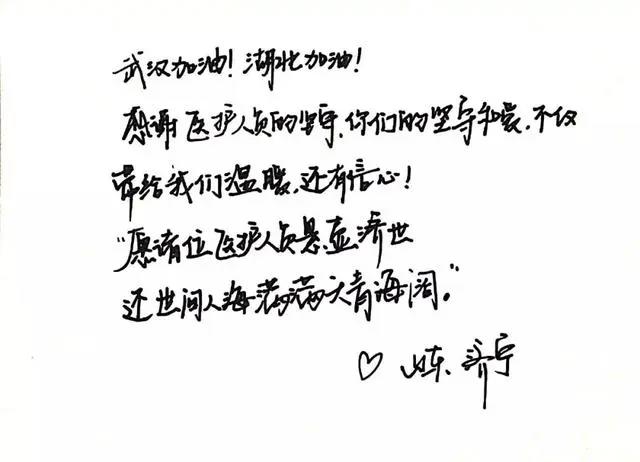 武汉加油！湖北加油！
感谢医护人员的坚守，你们的坚守和爱，不仅
带给我们温暖，还有信心！
“愿诸位医护人员悬壶济世
还世间人海茫茫满天青海阔。”
♡ 山东 济宁